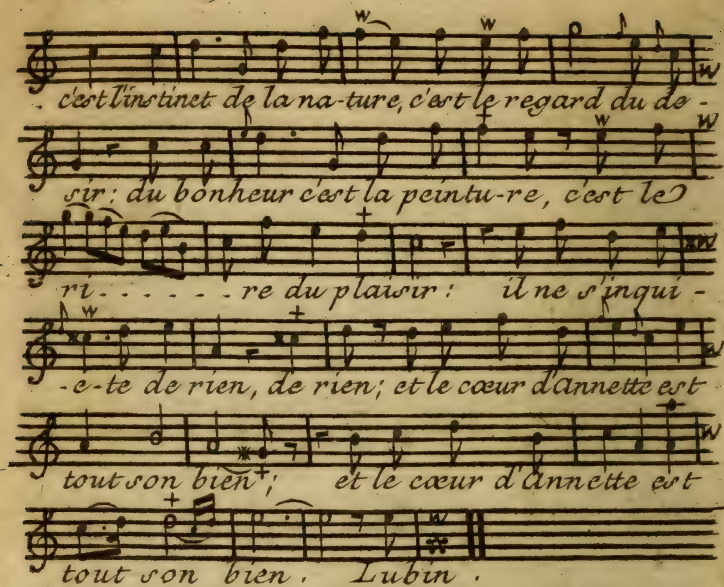 c'est l'instinct de la na-ture, c'est le regard du de-
sir: du bonheur c'est la peintu-re, c'est le
ri . . . . . . re du plaisir: il ne s'inqui-
-e-te de rien, de rien; et le cœur d'Annette est
tout son bien; et le cœur d'Annette est
tout son bien. Lubin.